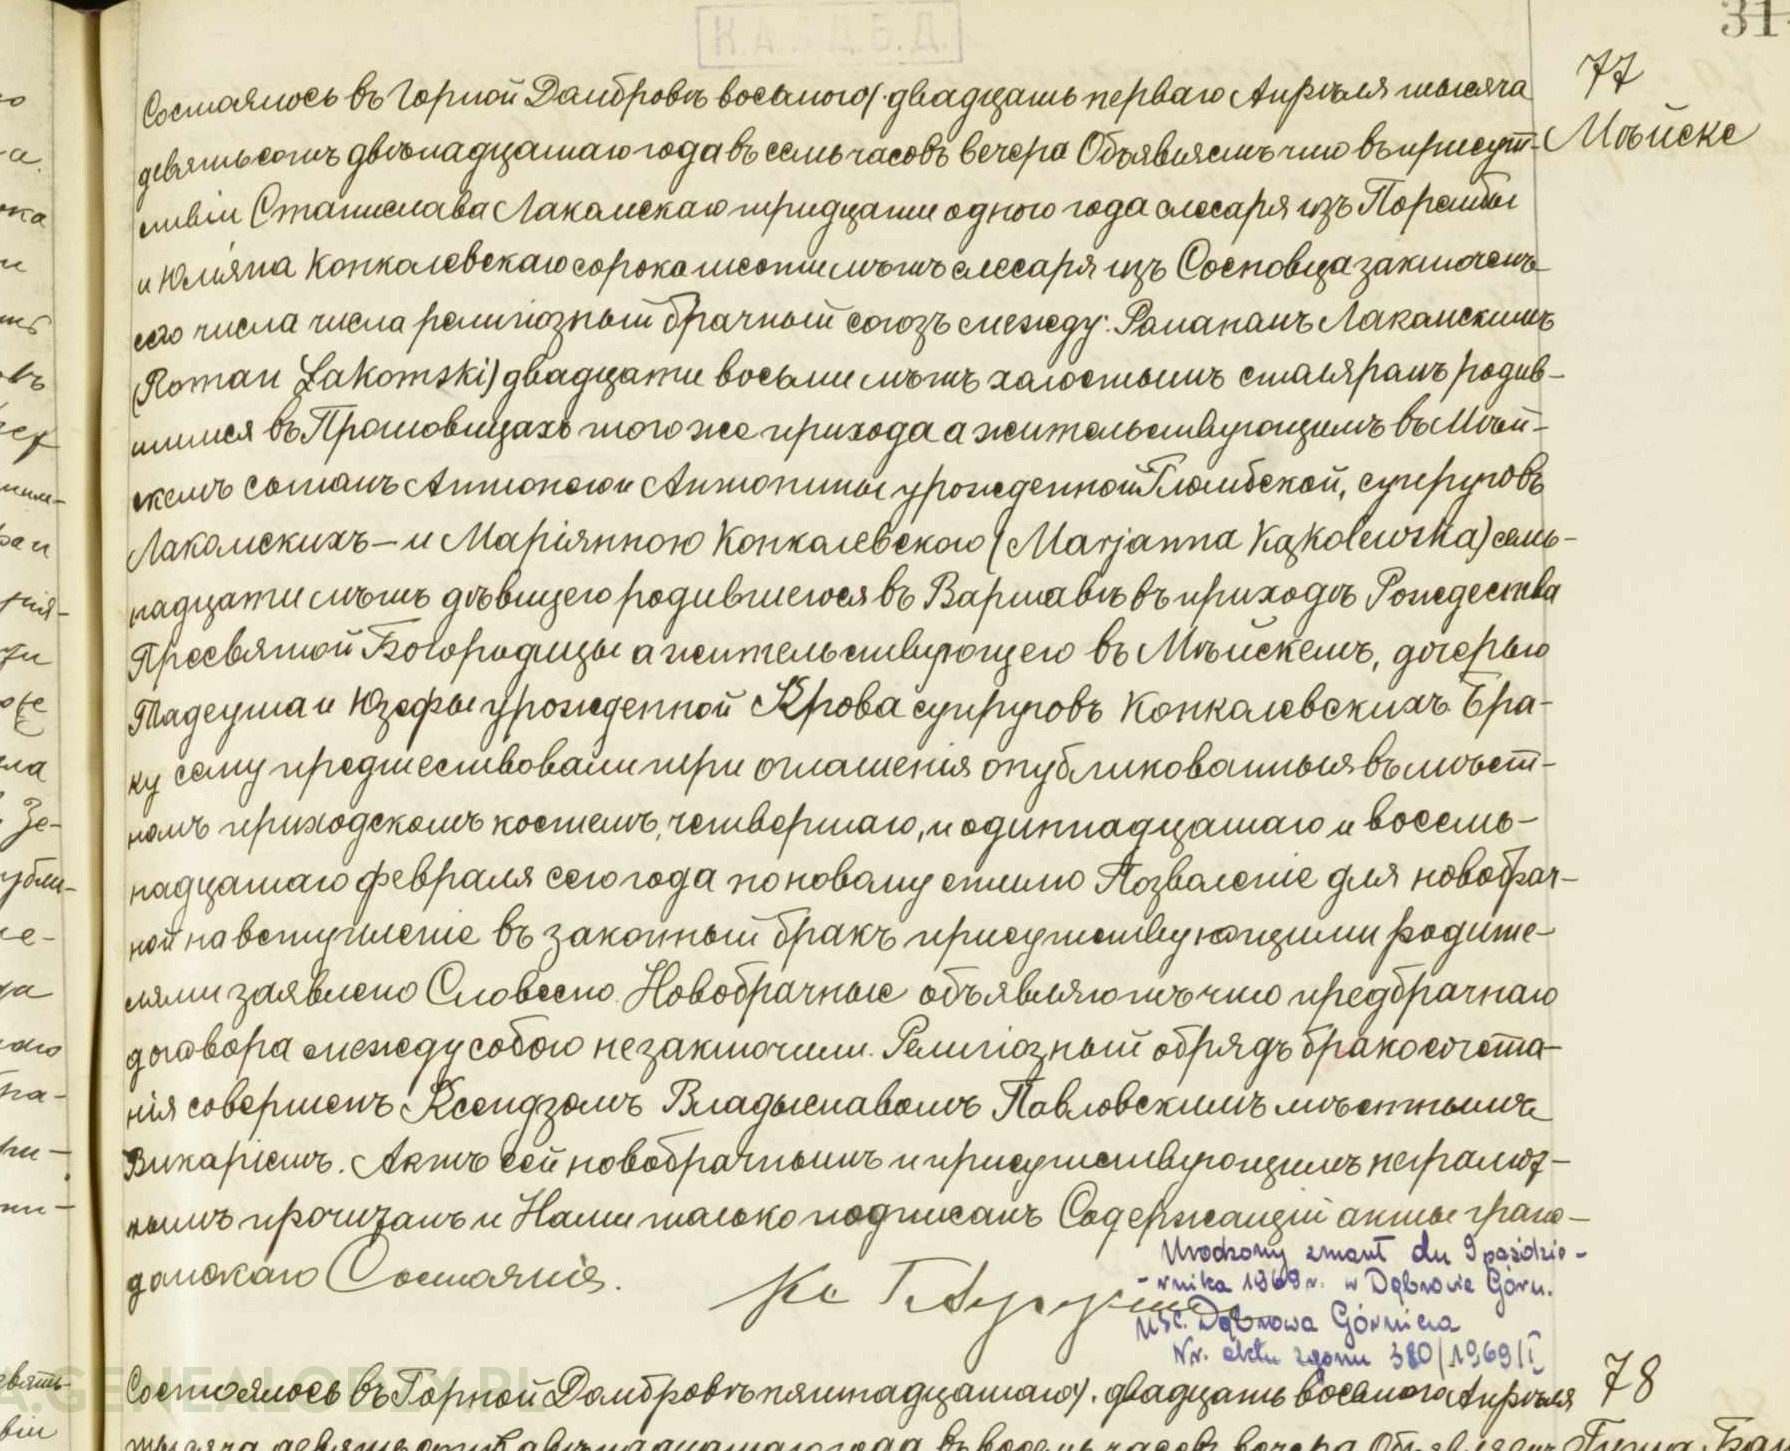 К.А. Д.Б.Д.
31
77
Мѣйске
Состоялось въ Горной Домбровѣ восьмого/двадцать перваго Апрѣля тысяча
девятьсотъ двѣнадцатаго года въ семь часовъ вечера Объявляемъ что въ присут-
ствіи Станислава Лакомскаго тридцати одного года слесаря изъ Порембы
и Юліяна Конкалевскаго сорока шести лѣтъ слесаря изъ Сосновца заключенъ
сего числа числа религіозный брачный союзъ между: Романомъ Лакомскимъ
(Roman Łakomski) двадцати восьми лѣтъ холостымъ столяромъ родив-
шимся въ Прошовицахъ того же прихода а жительствующимъ въ Мѣй-
скемъ сыномъ Антонего и Антонины урожденной Гломбской, супруговъ
Лакомскихъ – и Маріянною Конкалевскою (Marjanna Kąkolewska) семь-
надцати лѣтъ дѣвицею родившеюся въ Варшавѣ въ приходѣ Рождества
Пресвятой Богородицы а жительствующею въ Мѣйскемъ, дочерью
Тадеуша и Юзефы урожденной Крова супруговъ Конкалевскихъ. Бра-
ку сему предшествовали три оглашенія опубликованныя въ мѣст-
номъ приходскомъ костелѣ, четвертаго, и одиннадцатаго и восемь-
надцатаго февраля сего года по новому стилю Позволеніе для новобрач-
ной на вступленіе въ законный бракъ присутствующими родите-
лями заявлено Словесно. Новобрачные объявляютъ что предбрачнаго
договора между собою не заключили. Религіозный обрядъ бракосочета-
нія совершенъ Ксендзомъ Владыславомъ Павловскимъ мѣстнымъ
Викаріемъ. Актъ сей новобрачнымъ и присутствующимъ неграмот-
нымъ прочитанъ и Нами только подписанъ Содержащій акты граж-
данскаго Состоянія.
Кс Г.
Urodzony zmarł dn 9 paździe-
-rnika 1969 r. w Dąbrowie Górn.
USC. Dąbrowa Górnicza
Nr. aktu zgonu 380/1969/I
78
Состоялось въ Горной Домбровѣ пятнадцатаго/двадцать восьмого Апрѣля
тысяча девятьсотъ двѣнадцатаго года въ восемь часовъ вечера Объявляемъ